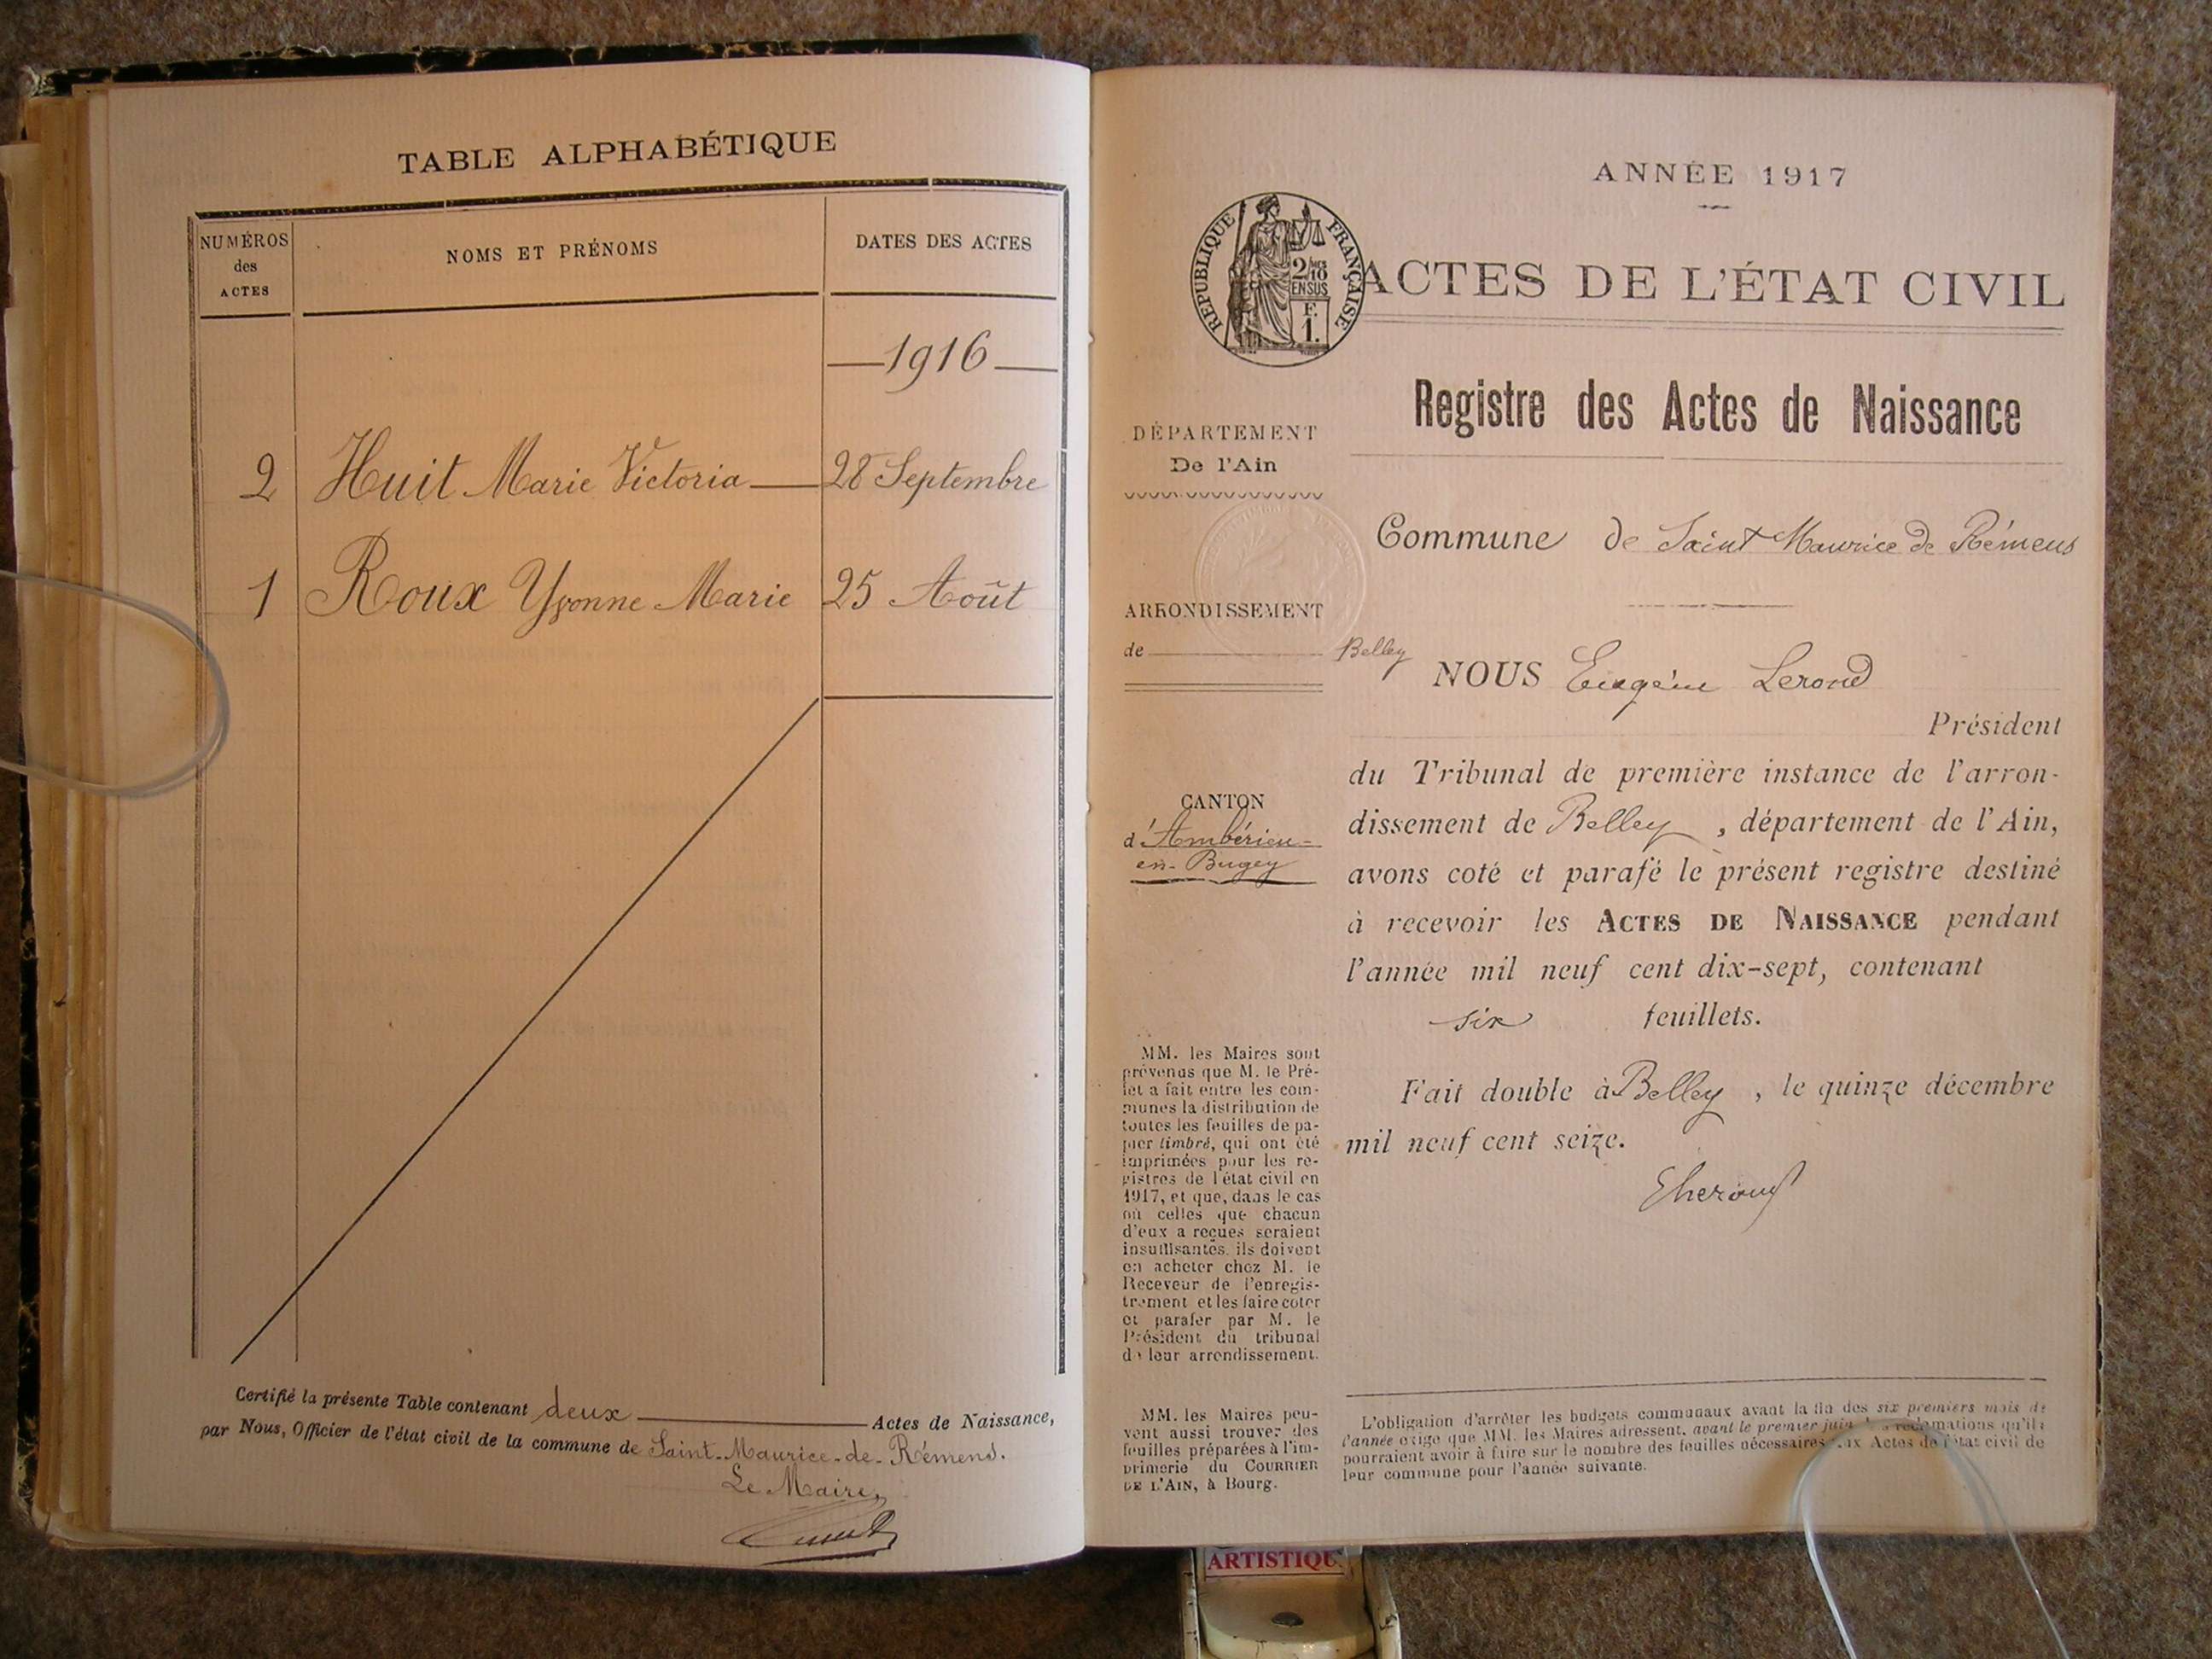 TABLE ALPHABÉTIQUE
NUMÉROS
des
ACTES
NOMS ET PRÉNOMS
DATES DES ACTES
1916
2 Huit Marie Victoria 28 Septembre
1 Roux Yvonne Marie 25 Août
Certifié la présente Table contenant deux Actes de Naissance,
par Nous, Officier de l'état civil de la commune de Saint-Maurice-de-Rémens.
Le Maire,
ANNÉE 1917
RÉPUBLIQUE FRANÇAISE
2/10
EN SUS
F.
1.
ACTES DE L'ÉTAT CIVIL
Registre des Actes de Naissance
DÉPARTEMENT
De l'Ain
Commune de Saint Maurice de Rémens
ARRONDISSEMENT
de Belley
NOUS Eugène Lerond
Président
du Tribunal de première instance de l'arron-
dissement de Belley, département de l'Ain,
avons coté et parafé le présent registre destiné
à recevoir les ACTES DE NAISSANCE pendant
l'année mil neuf cent dix-sept, contenant
six feuillets.
Fait double à Belley, le quinze décembre
mil neuf cent seize.
CANTON
d'Ambérieu-
en-Bugey
MM. les Maires sont
prévenus que M. le Pré-
fet a fait entre les com-
munes la distribution de
toutes les feuilles de pa-
pier timbré, qui ont été
imprimées pour les re-
gistres de l'état civil en
1917, et que, dans le cas
où celles que chacun
d'eux a reçues seraient
insuffisantes, ils doivent
en acheter chez M. le
Receveur de l'enregis-
trement et les faire coter
et parafer par M. le
Président du tribunal
de leur arrondissement.
MM. les Maires peu-
vent aussi trouver des
feuilles préparées à l'im-
primerie du COURRIER
DE L'AIN, à Bourg.
L'obligation d'arrêter les budgets communaux avant la fin des six premiers mois de
l'année exige que MM. les Maires adressent, avant le premier juin, les réclamations qu'ils
pourraient avoir à faire sur le nombre des feuilles nécessaires aux Actes de l'état civil de
leur commune pour l'année suivante.
ARTISTIQU